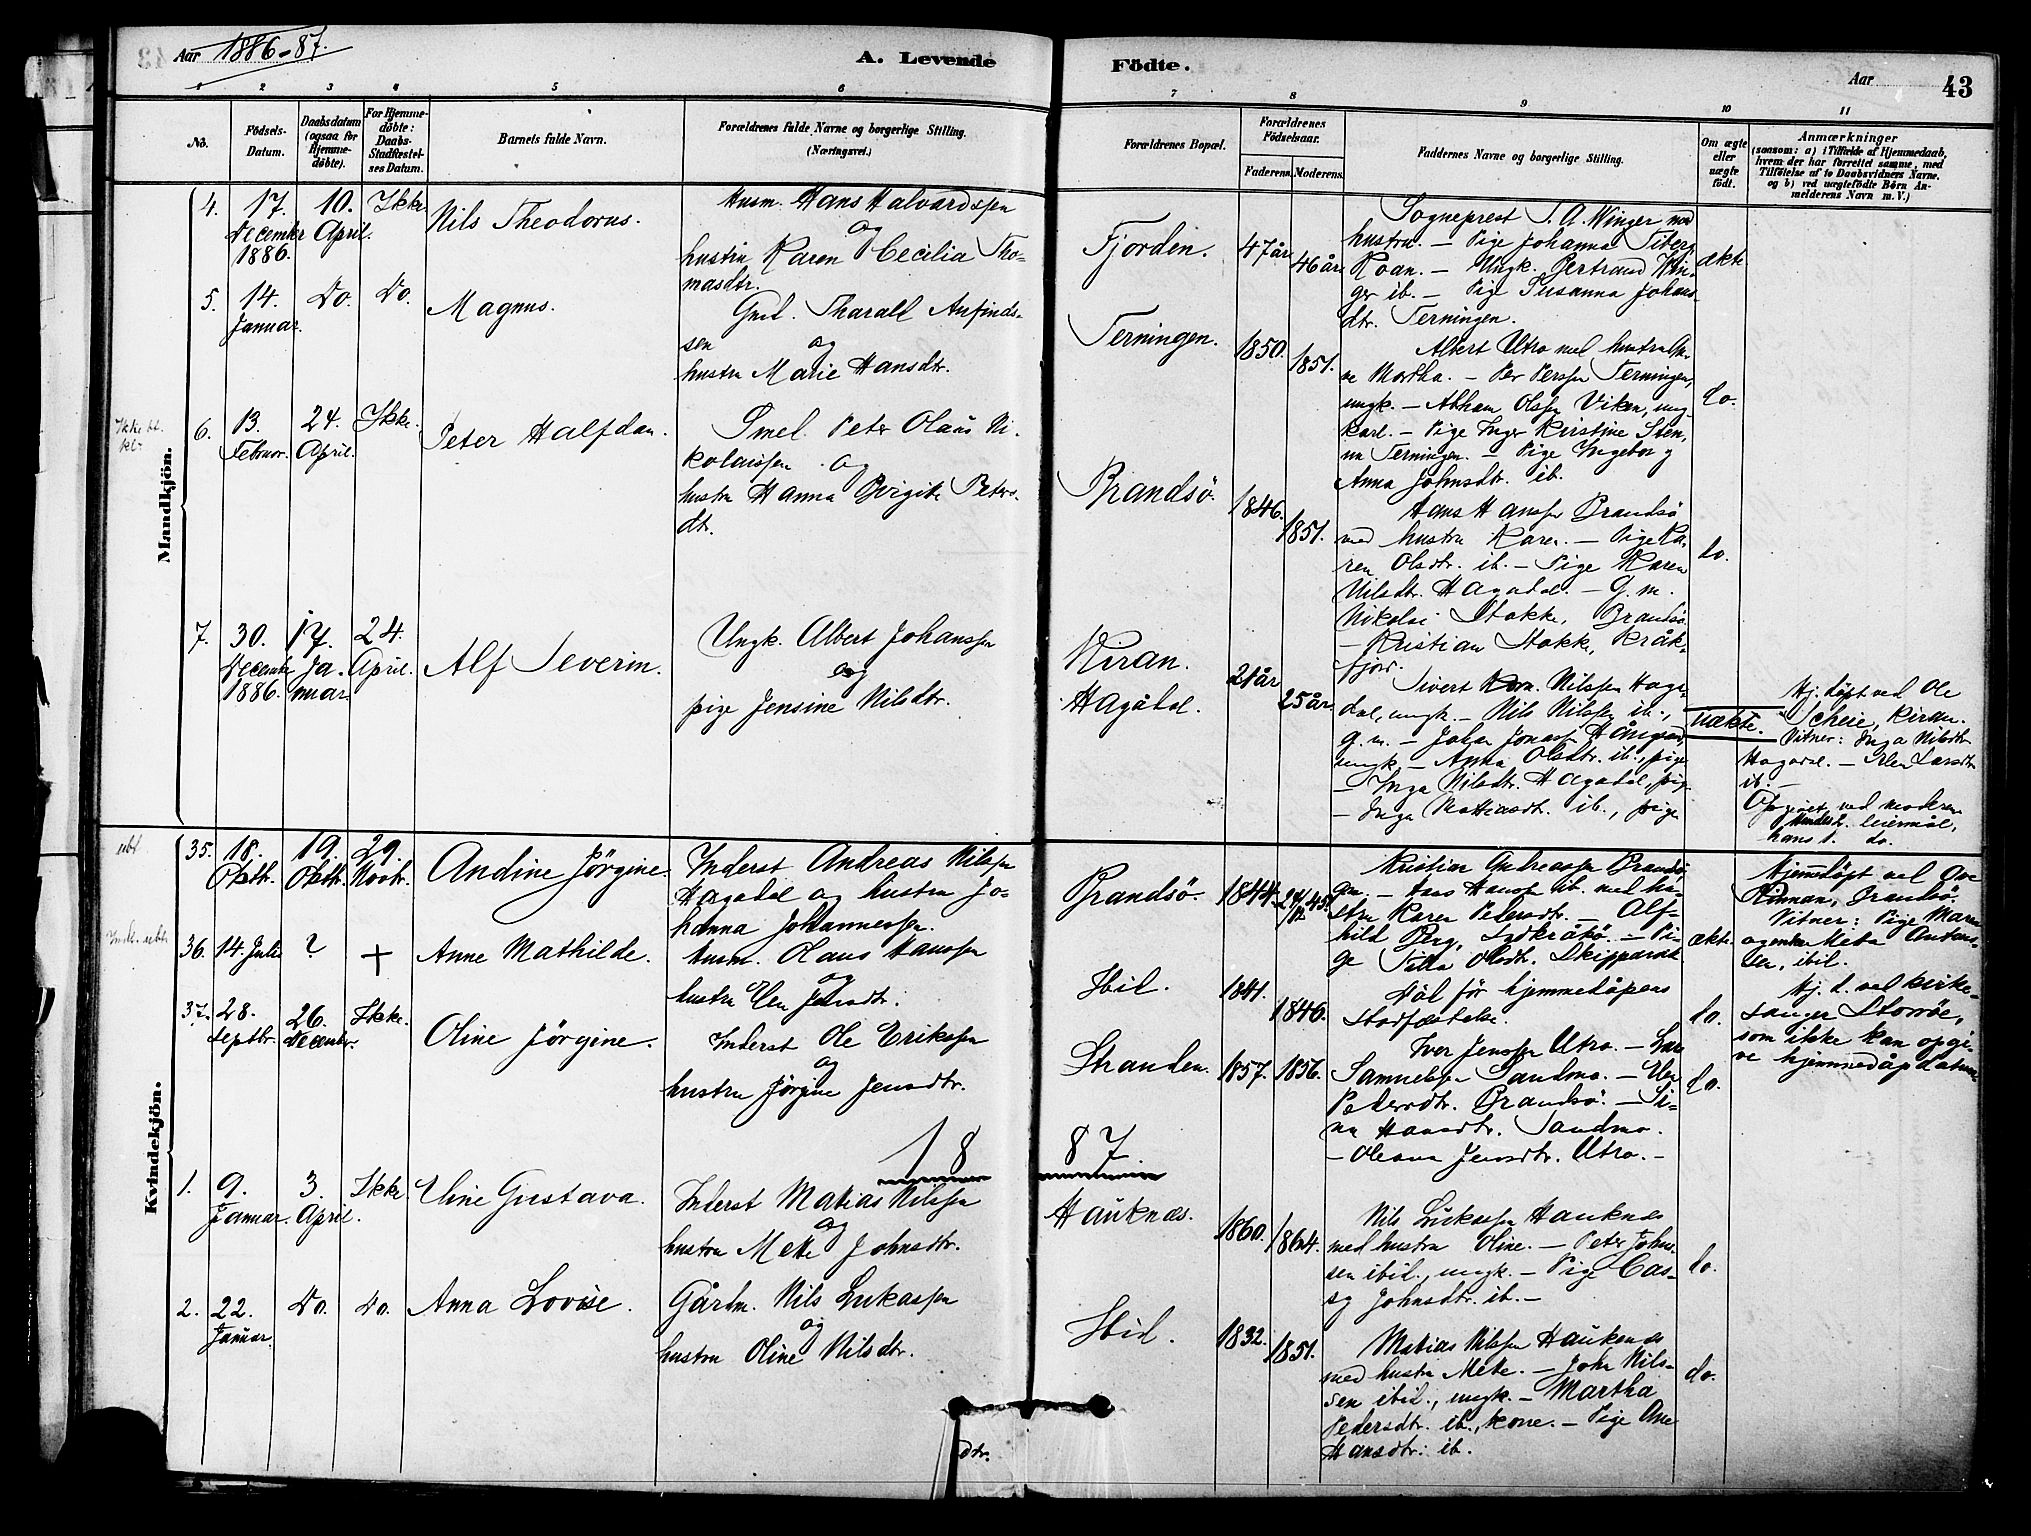 Aar 1886-87.
A. Levende Fødte.
Aar
43
1 2 3 4 5 6 7 8 9 10 11
No.
Fødsels-Datum.
Daabsdatum (ogsaa for Hjemme-døbte).
For Hjemme-døbte: Daabs-Stadfæstel-ses Datum.
Barnets fulde Navn.
Forældrenes fulde Navne og borgerlige Stilling.
(Næringsvei.)
Forældrenes Bopæl.
Forældrenes Fødselsaar.
Faderens. Moderens.
Faddernes Navne og borgerlige Stilling.
Om ægte eller uægte født.
Anmærkninger
(saasom: a) i Tilfælde af Hjemmedaab,
hvem der har forrettet samme, med
Tilføielse af to Daabsvidners Navne.
og b) ved uægtefødte Børn An-
melderens Navn m. V.)
Mandkjön.
4. 17. December 1886. 10. April. Ikke
Nils Theodorus.
Husm. Hans Halvardssen
og
hustru Karen Cecilia Tho-
masdtr.
Fjorden. 47 år 46 år
Sogneprest S. A. Winger med
hustru. — Pige Johanna Fiberg
Roan. — Ungk. Bertrand Win-
ger ib. — Pige Susanna Johans
dtr. Terningen.
ækte
5. 14. Januar. Do. Do.
Magnus.
Gml. Tharall Anfinds-
sen
og
hustru Marie Hansdtr.
Terningen. 1850. 1851.
Albert Utro med hustru An-
ne Martha. — Per Perssen Terningen,
ungk. — Abham Olssen Viken, ung-
karl. — Pige Inger Kristine Sten,
Terningen. — Pige Ingeborg
Anna Johnsdtr. ib.
do.
6. 13. Februar. 24. April. Ikke.
Peter Halfdan.
Smel. Peter Olaus Ni-
kolaissen og
hustru Hanna Birgite Peters-
dtr.
Brandsö. 1846. 1851.
Hans Hanssen Brandsö
med hustru Karen. — Pige Ka-
ren Olsdtr. ib. — Pige Karen
Nilsdtr. Hagadal. — G. m.
Nikolai Stokke, Brandsö
— Kristian Stokke, Kråk-
fjord.
do.
7. 30. December 1886. 17. Januar 24. April.
Alf Severin.
Ungk. Albert Johanssen
og
pige Jensine Nilsdtr.
Kiran. Hagådal. 21 år 25 år.
Sivert Nilssen Haga-
dal, ungk. — Nils Nilssen ib.,
g. m. — Johan Jonassen
ungk. — Anna Olsdtr. ib., pige
— Inga Nilsdtr. Hagadal, pige
— Inga Mathiasdtr. ib., pige
uækte.
Hj. døpt ved Ole
Scheie, Kiran.
Vitner: Inga Nilsdtr
Hagadal. — Elen Larsdtr
ib. —
Opgivet ved moderen
hendes 2. leiermål,
hans 1. do.
Kvindekjön.
35. 18. Oktbr. 19. Oktbr. 29. Novbr.
Andine Jörgine
Inderst Andreas Nilssen
Hagadal og hustru Jo-
hanna Johannessen.
Brandsö. 1844. 24/12 45.
Kristian Andreassen Brandsö,
gm. — Hans Hanssen ib. med hu-
stru Karen Pedersdtr. — Alf-
hild Berg, Indkråkö. — Pi-
ge Olsdtr.
ækte
Hjemmedøpt ved Ove
Rinnan, Brandsö.
Vitner: Pige Maren
og enke Meta Antons-
sen, ibid.
36. 14. Juli ? +
Anne Mathilde.
Husm. Olaus Hanssen
og
hustru Elen Jensdtr.
Ibid. 1841. 1846.
för hjemmedåpens
Stadfæstelse.
do.
Hj. d. ved kirke-
sanger Storröe,
som ikke kan opgi-
ve hjemmedåpsdatum
37. 28. Septbr. 26. December. Ikke.
Oline Jörgine.
Inderst Ole Erikssen
og
hustru Jörgine Jensdtr.
Stranden. 1857. 1856.
Iver Jenssen Utro. —
Samuelssen Sandmo. — Elen
Pedersdtr. Brandsö. — Si-
na Hansdtr. Sandmo.
— Oleana Jensdtr. Utro. —
do.
1887
1. 9. Januar. 3. April. Ikke
Oline Gustava.
Inderst Matias Nilssen
og
hustru Mette Johnsdtr.
Hauknes. 1860. 1864.
Nils Lukassen Hauknes
med hustru Oline. — Peter John-
sen ibid., ungk. — Pige Cas-
sy Johnsdtr. ib. —
do.
2. 22. Januar. Do. Do.
Anna Lovise.
Gårdm. Nils Lukassen
og
hustru Oline Nilsdtr.
Ibid. 1832. 1851.
Matias Nilssen Hauknes
med hustru Mette. — John Nils-
sen ibid., ungk. — Martha
Pedersdtr. ib., kone. — Pige Ane
Hansdtr. ib.
do.
dtr.